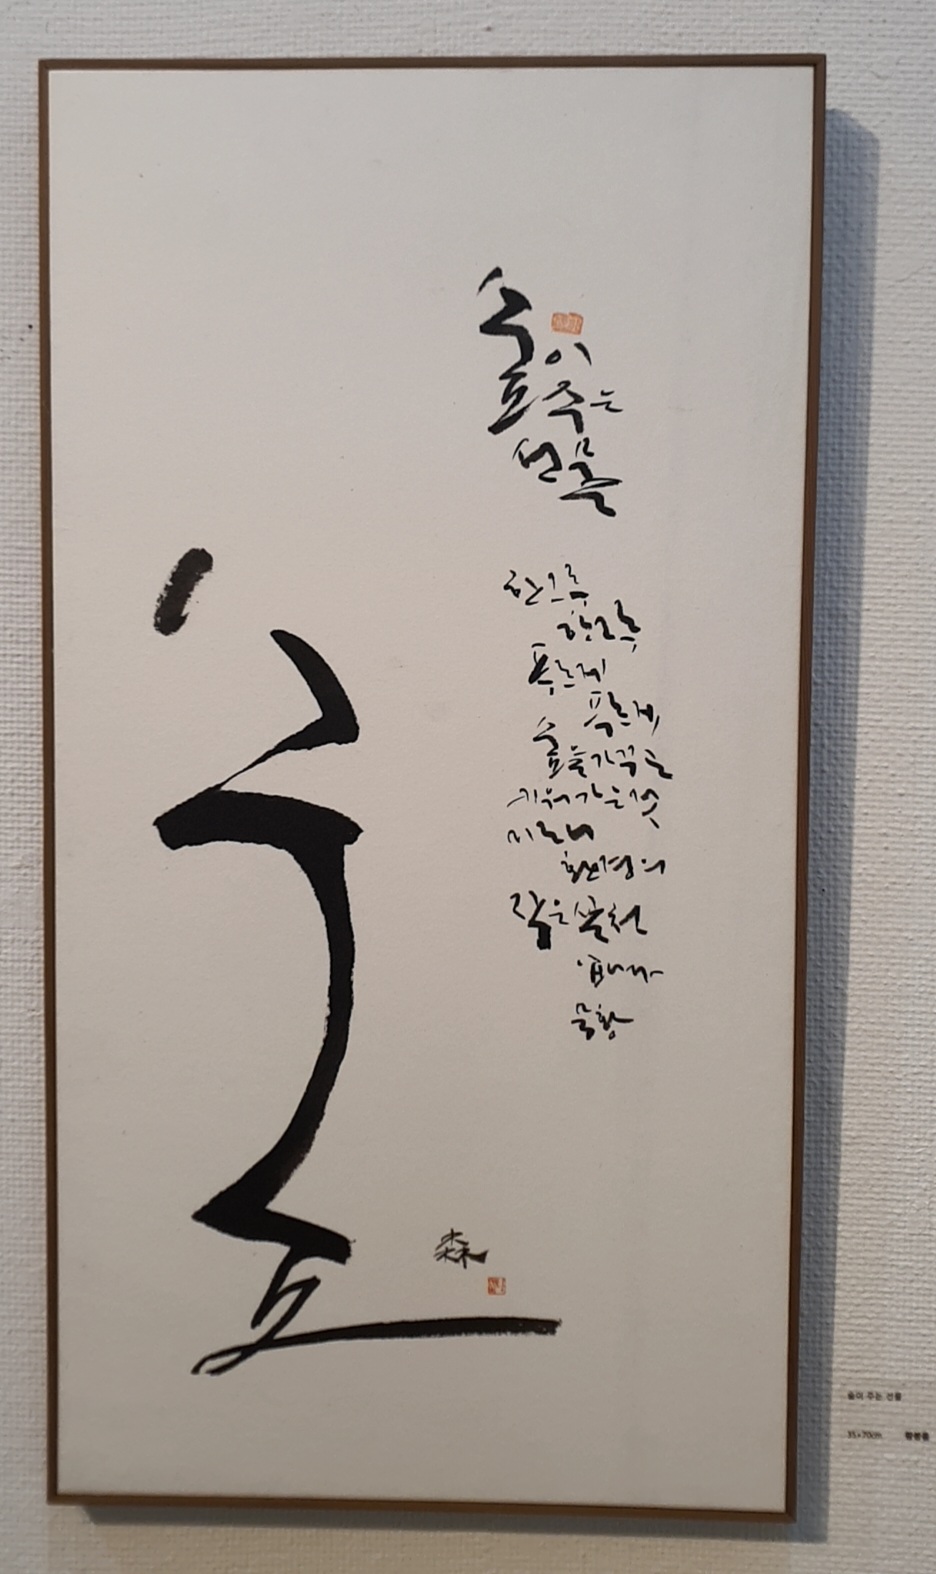 숲이 주는
선물
한그루
한그루
푸르게
푸르게
숲을가꾸는
키워가는것
미로니
환경의
작은실천
입니다
묵황
숲
森
숲이 주는 선물
35×70cm